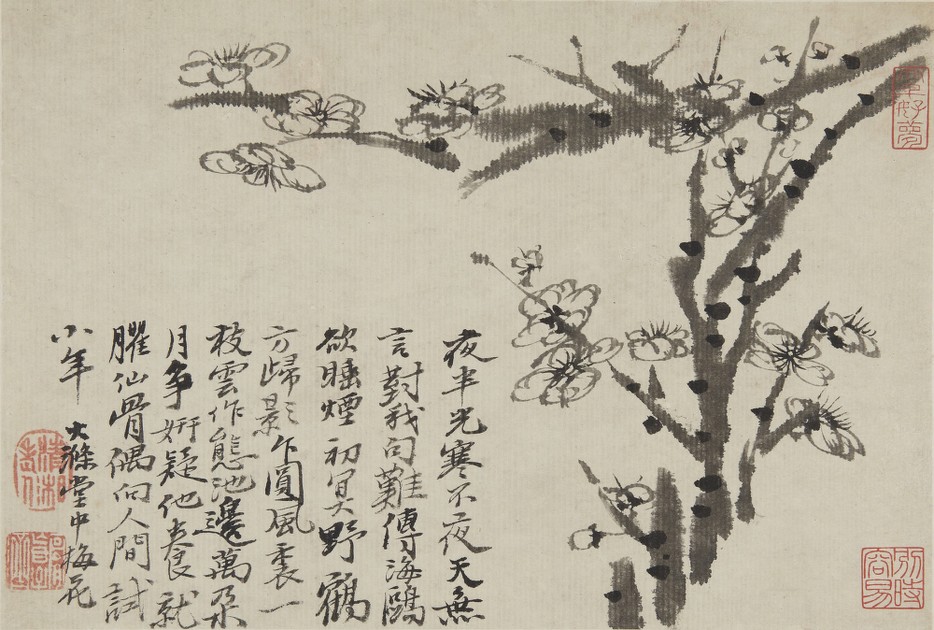 夜半光寒不夜天無
言對我句難傳海鷗
欲睡煙初冥野鶴
方歸影乍圓風裏一
枝雲作態池邊萬朵
月爭妍疑他養就
臞仙骨偶向人間試
小年 大滌堂中梅花
清湘老人
別時容易